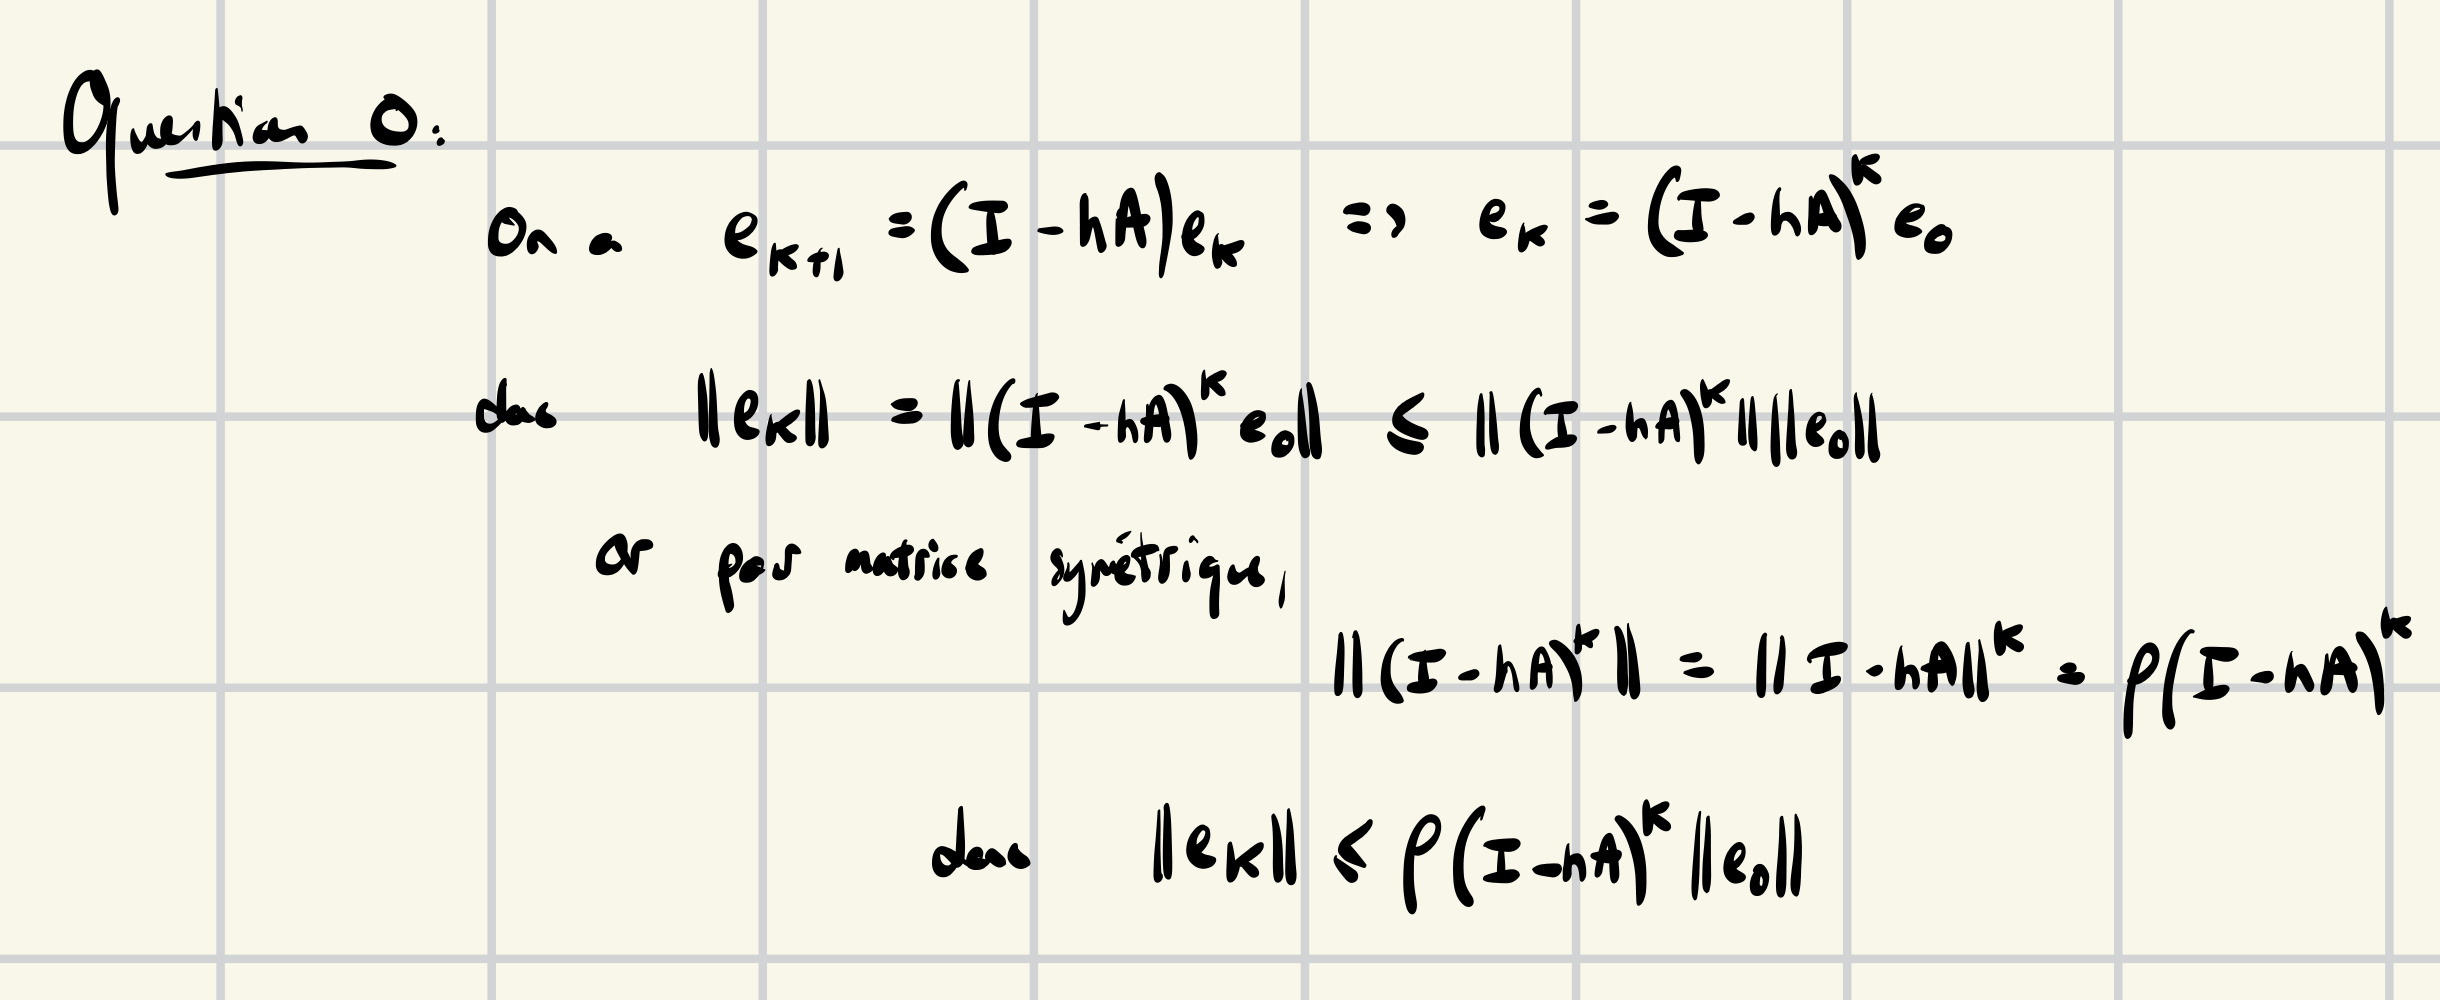 Question 0:
On a e_{k+1} = (I - hA)e_k => e_k = (I - hA)^k e_0
donc ||e_k|| = ||(I - hA)^k e_0|| ≤ ||(I - hA)^k|| ||e_0||
or pour matrice symétrique,
||(I - hA)^k|| = ||I - hA||^k = ρ(I - hA)^k
donc ||e_k|| ≤ ρ(I - hA)^k ||e_0||